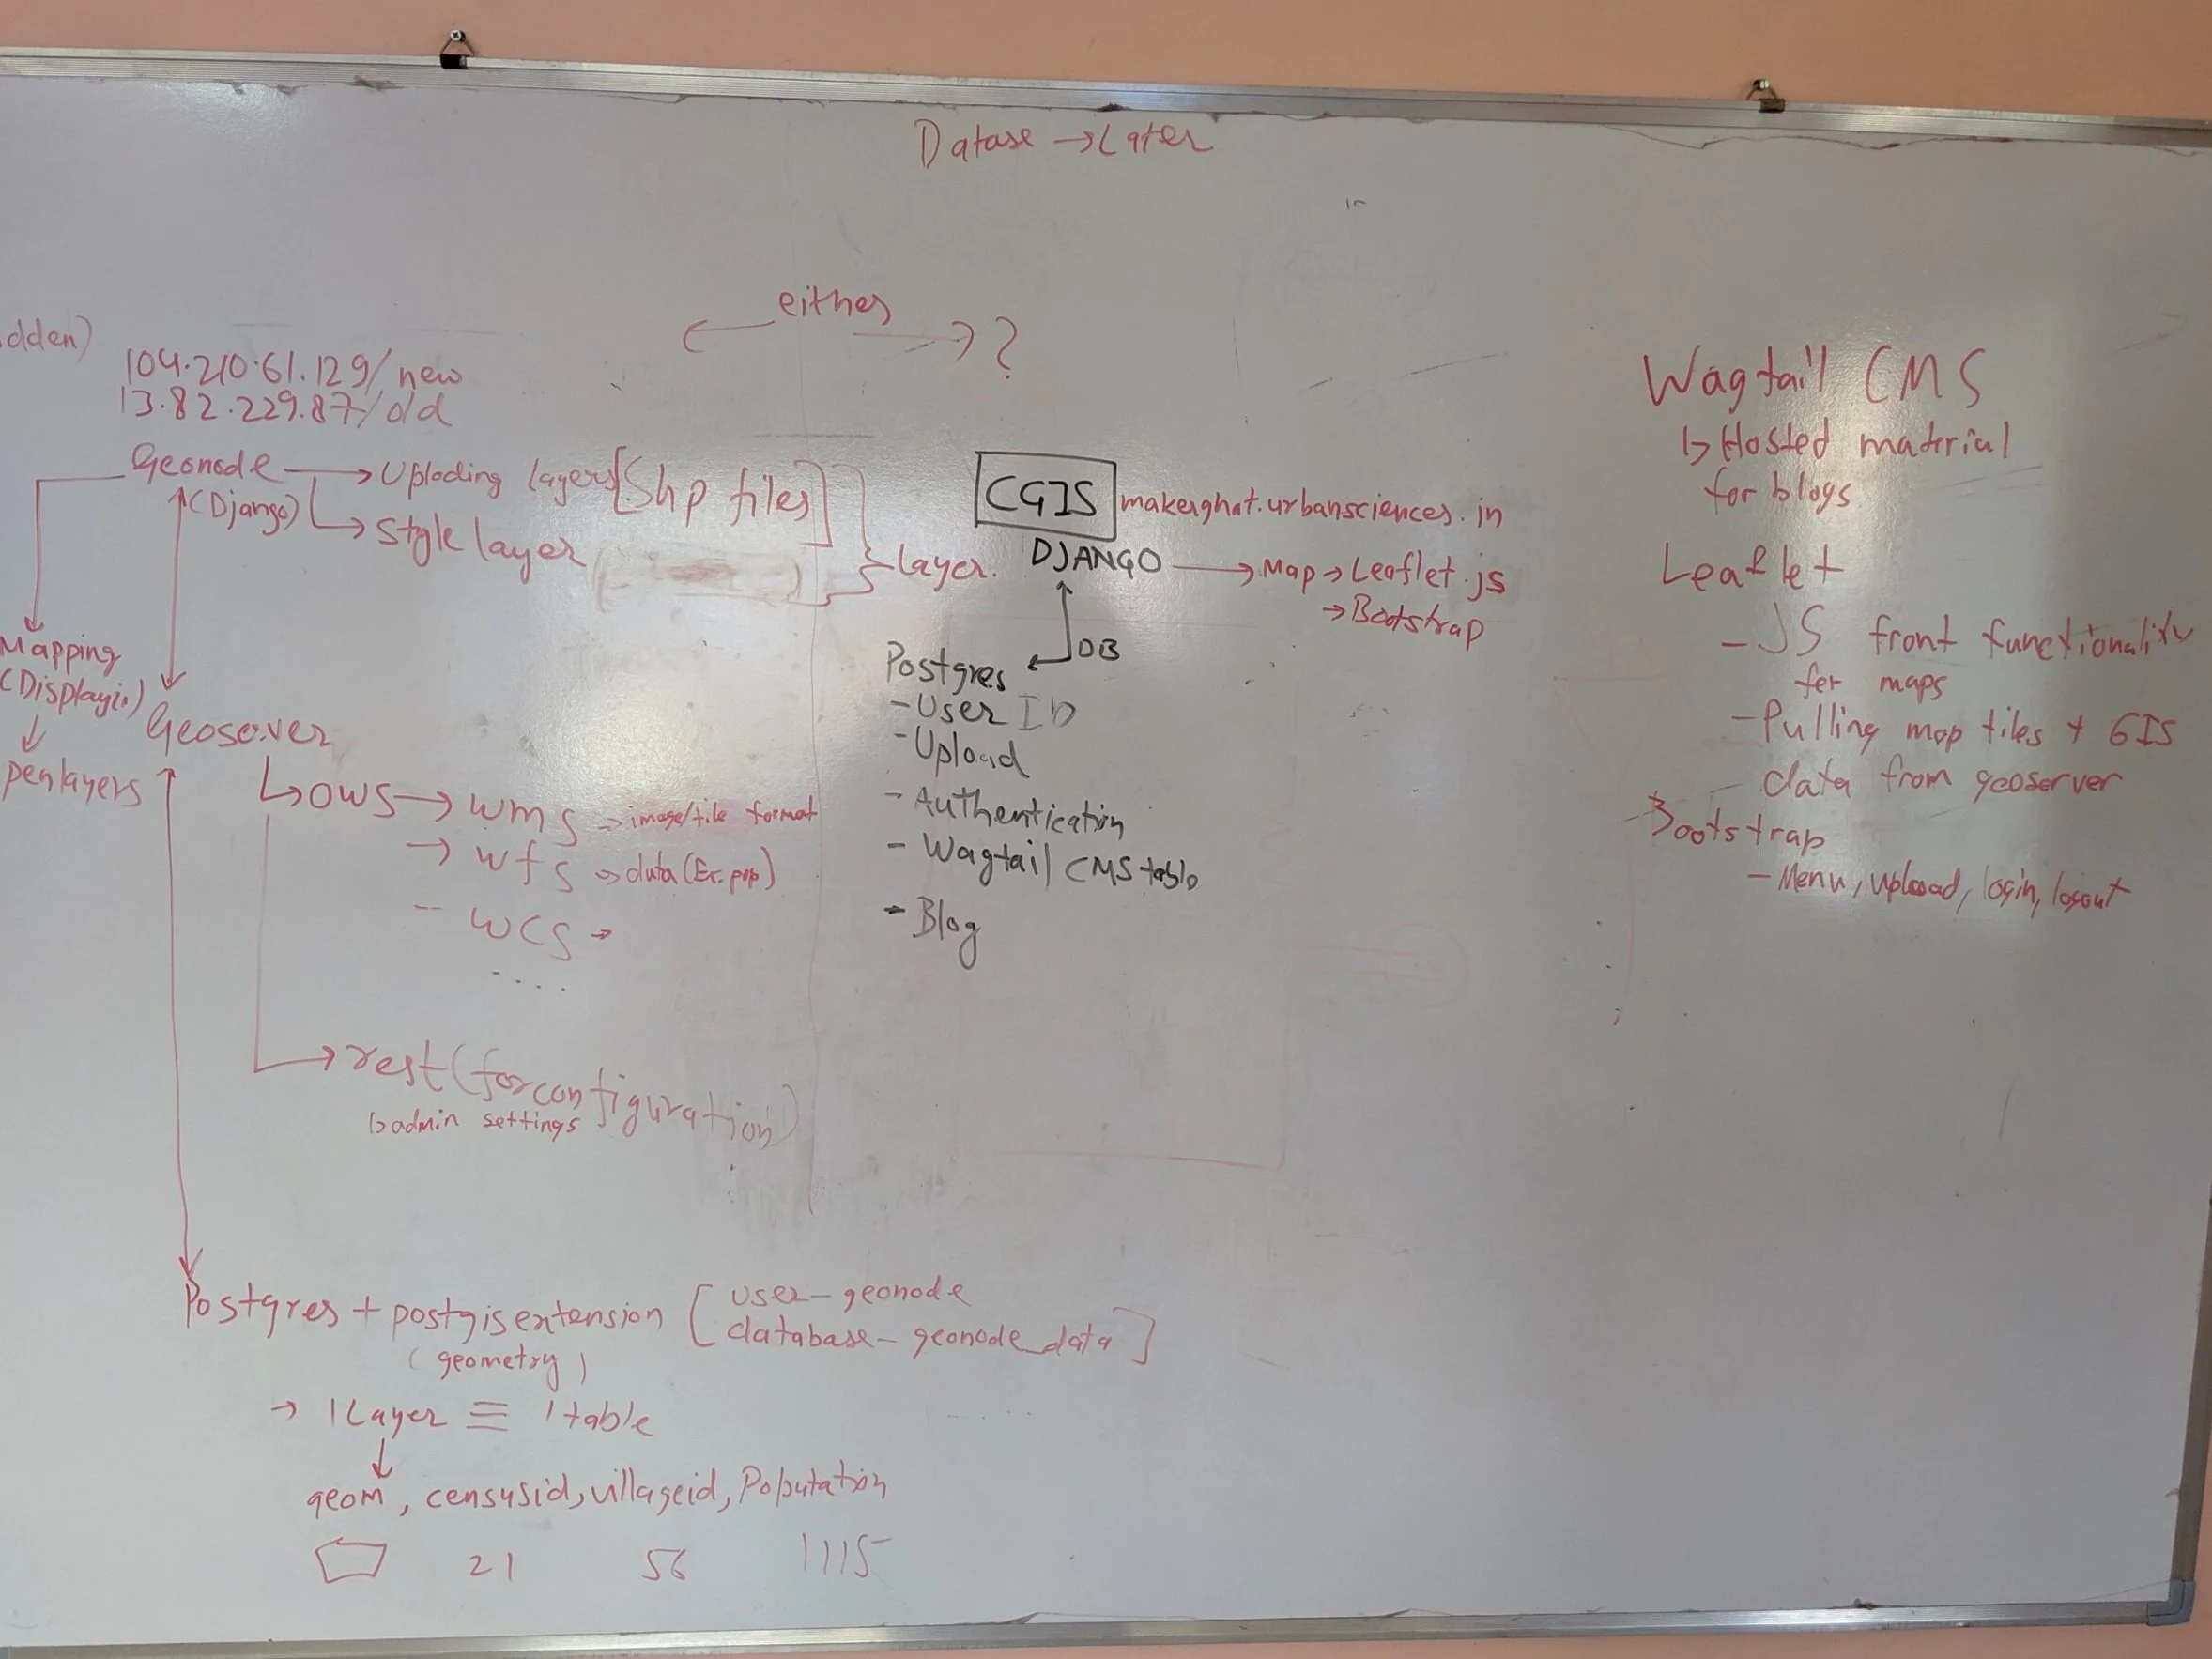 Datase → Later
← either → ?
dden)
104.210.61.129/new
13.82.229.87/old
Geonode → Uploding layers [Shp files]
(Django) → Style layer
} Layer.
Mapping
(Displayin)
↓
penlayers
Geoserver
↳ OWS → wms → image/tile format
→ wfs → data (Ex. pop)
- wcs →
....
→ rest (for configuration)
↳ admin settings
Postgres + postgis extension [user - geonode
database - geonode_data]
(geometry)
→ 1 Layer ≡ 1 table
↓
geom, censusid, villageid, Population
21 56 1115
CGIS makerghat.urbansciences.in
DJANGO → Map → Leaflet.js
→ Bootstrap
DB
Postgres
- User ID
- Upload
- Authentication
- Wagtail CMS table
- Blog
Wagtail CMS
↳ Hosted material
for blogs
Leaflet
- JS front functionality
for maps
- Pulling map tiles + GIS
data from geoserver
Bootstrap
- Menu, upload, login, logout